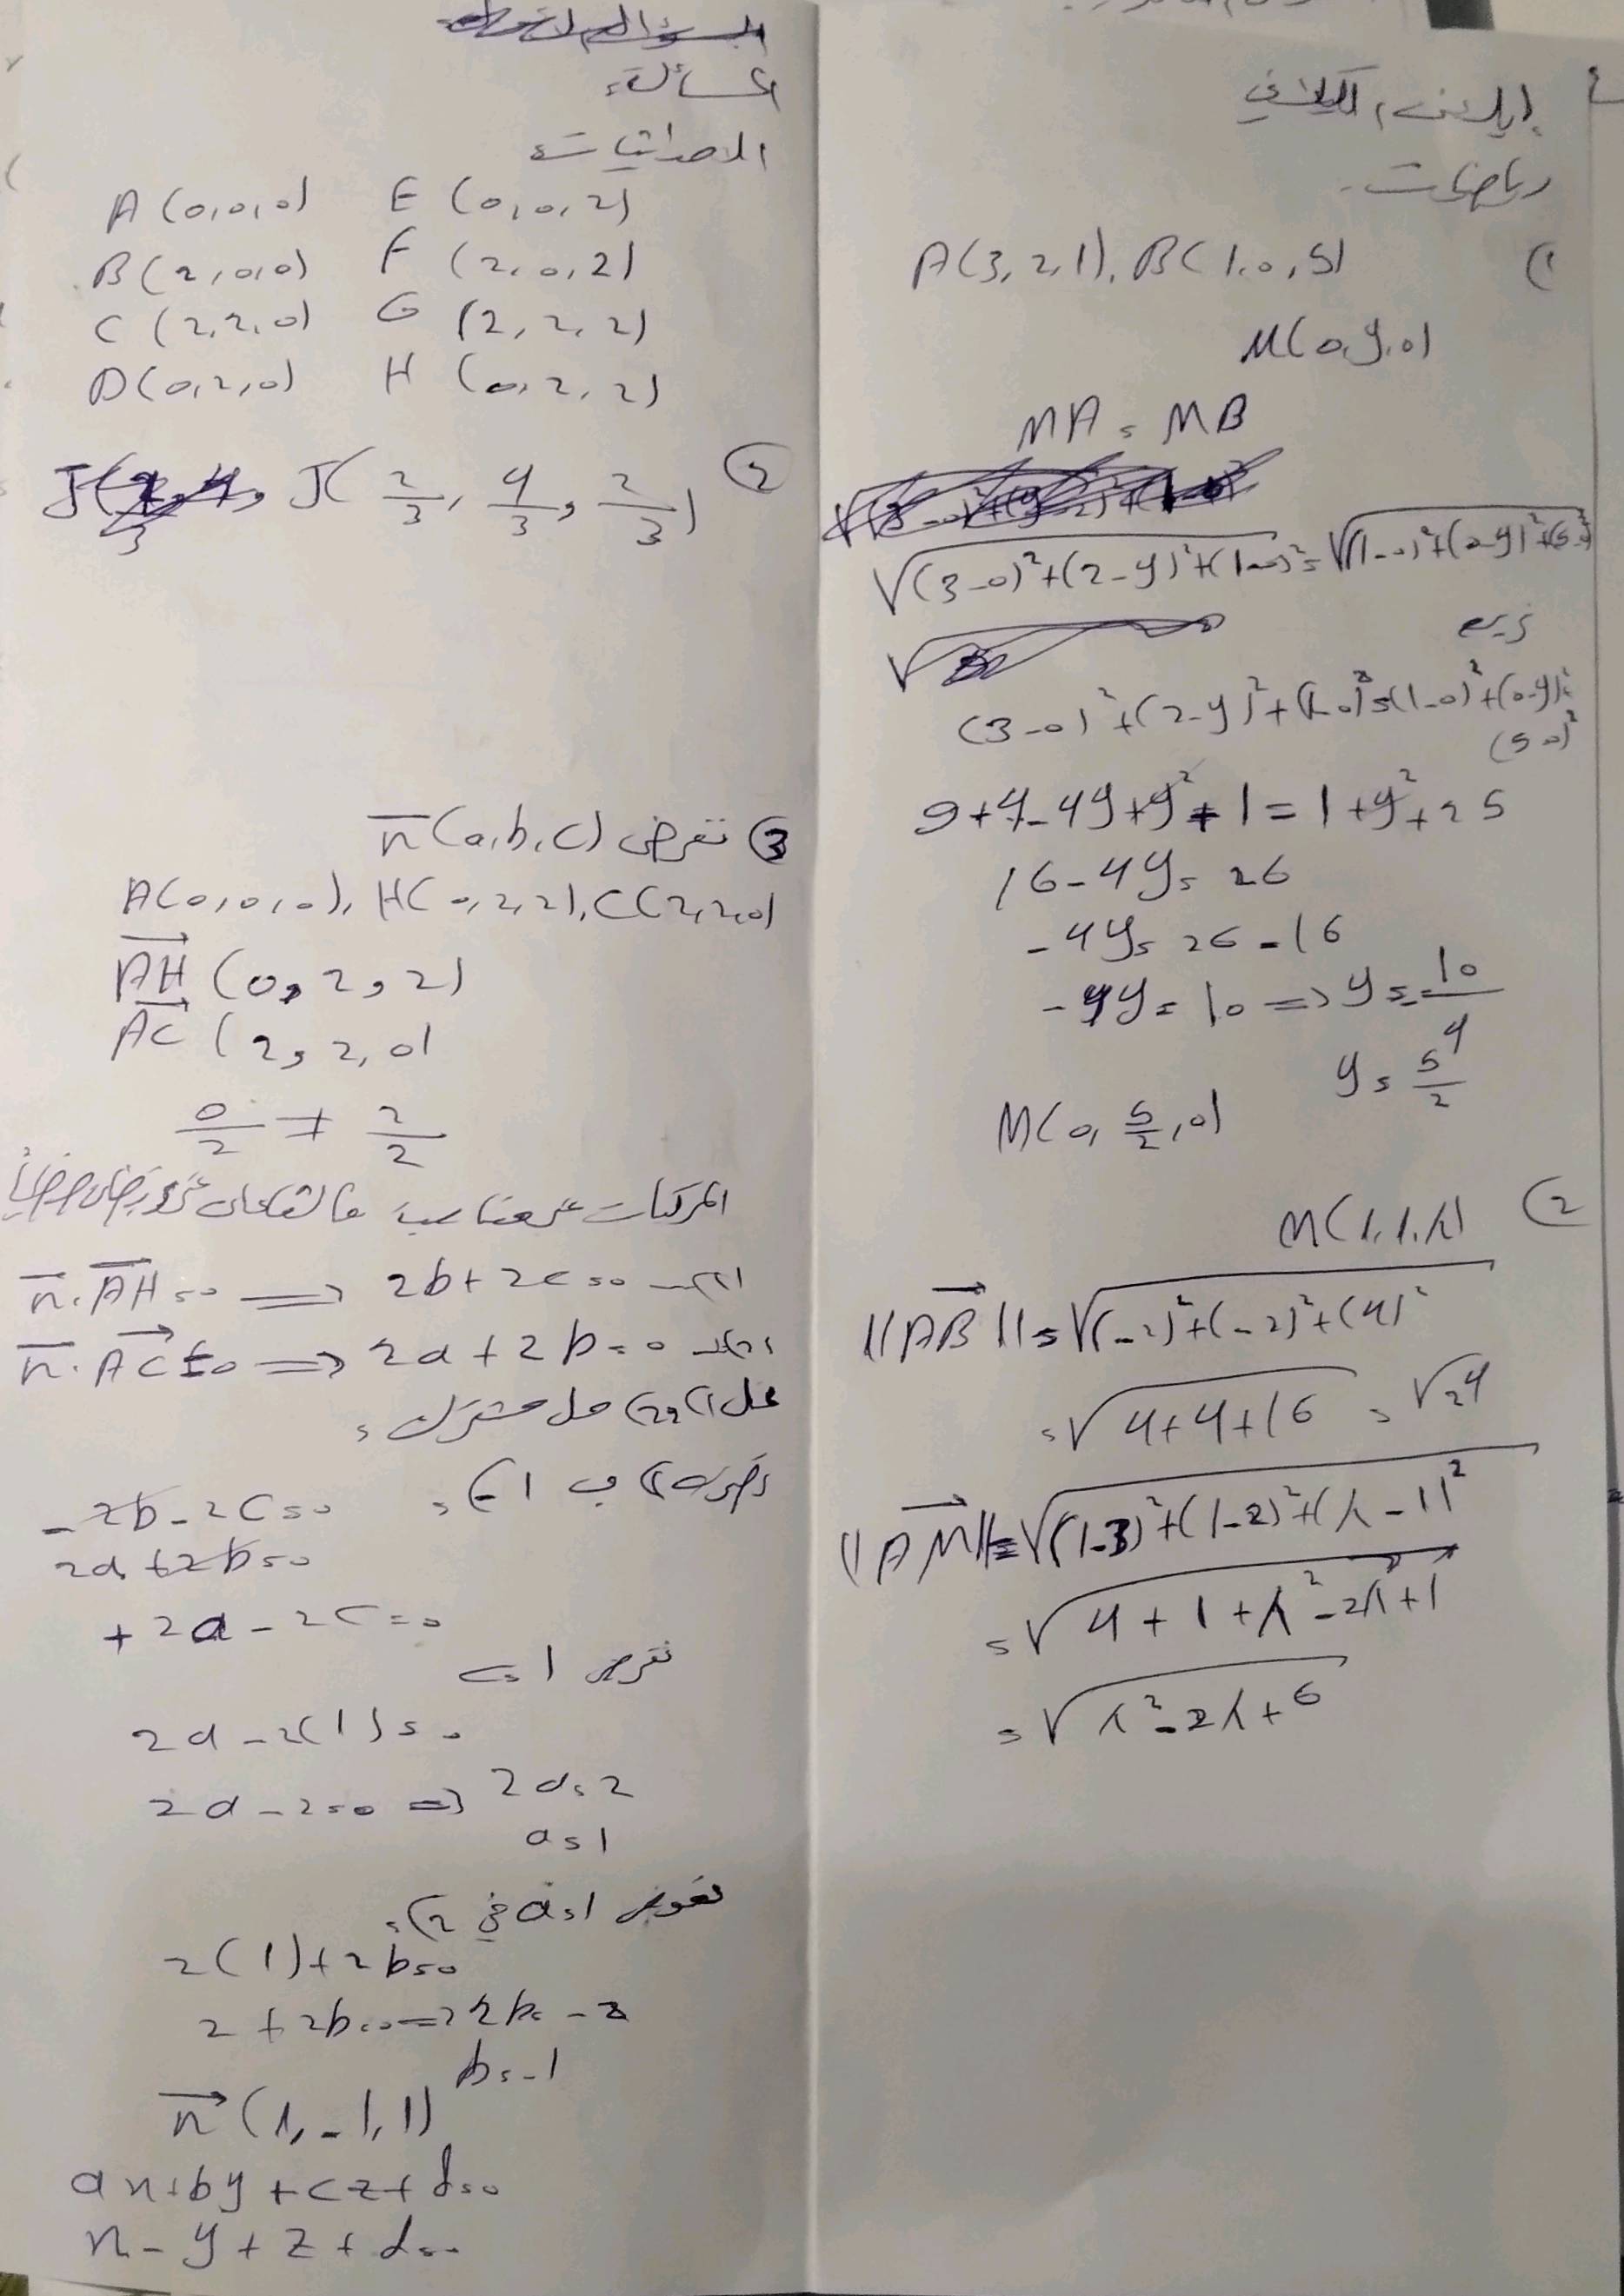 رياضيات
1) A(3,2,1), B(1,0,5)
M(0,y,0)
MA = MB
√(3-0)²+(2-y)²+(1-0)² = √(1-0)²+(2-y)²+(5-0)²
نربع
(3-0)²+(2-y)²+(1-0)² = (1-0)²+(0-y)²+
(5-0)²
9+4-4y+y²+1 = 1+y²+25
16-4y = 26
-4y = 26-16
-4y = 10 => y = -10/4
y = 5/2
M(0, 5/2, 0)
2) M(1,1,λ)
||AB|| = √(-2)²+(-2)²+(4)²
= √4+4+16 = √24
||AM|| = √(1-3)²+(1-2)²+(λ-1)²
= √4+1+λ²-2λ+1
= √λ²-2λ+6
المسألة:
الاحداثيات:
A(0,0,0) E(0,0,2)
B(2,0,0) F(2,0,2)
C(2,2,0) G(2,2,2)
D(0,2,0) H(0,2,2)
② J(2/3, 4/3, 2/3)
③ نفرض n(a,b,c)
A(0,0,0), H(0,2,2), C(2,2,0)
AH (0,2,2)
AC (2,2,0)
0/2 ≠ 2/2
المركبات غير متناسبة فالشعاعان غير مرتبطان خطياً
n.AH = 0 => 2b+2c=0 —(1)
n.AC = 0 => 2a+2b=0 —(2)
حل (1) و(2) حل مشترك:
نضرب (1) ب (-1):
-2b-2c=0
2a+2b=0
+2a-2c=0
نفرض c=1
2a-2(1)=0
2a-2=0 => 2a=2
a=1
نعوض a=1 في (2):
2(1)+2b=0
2+2b=0 => 2b=-2
b=-1
n(1,-1,1)
ax+by+cz+d=0
x-y+z+d=0